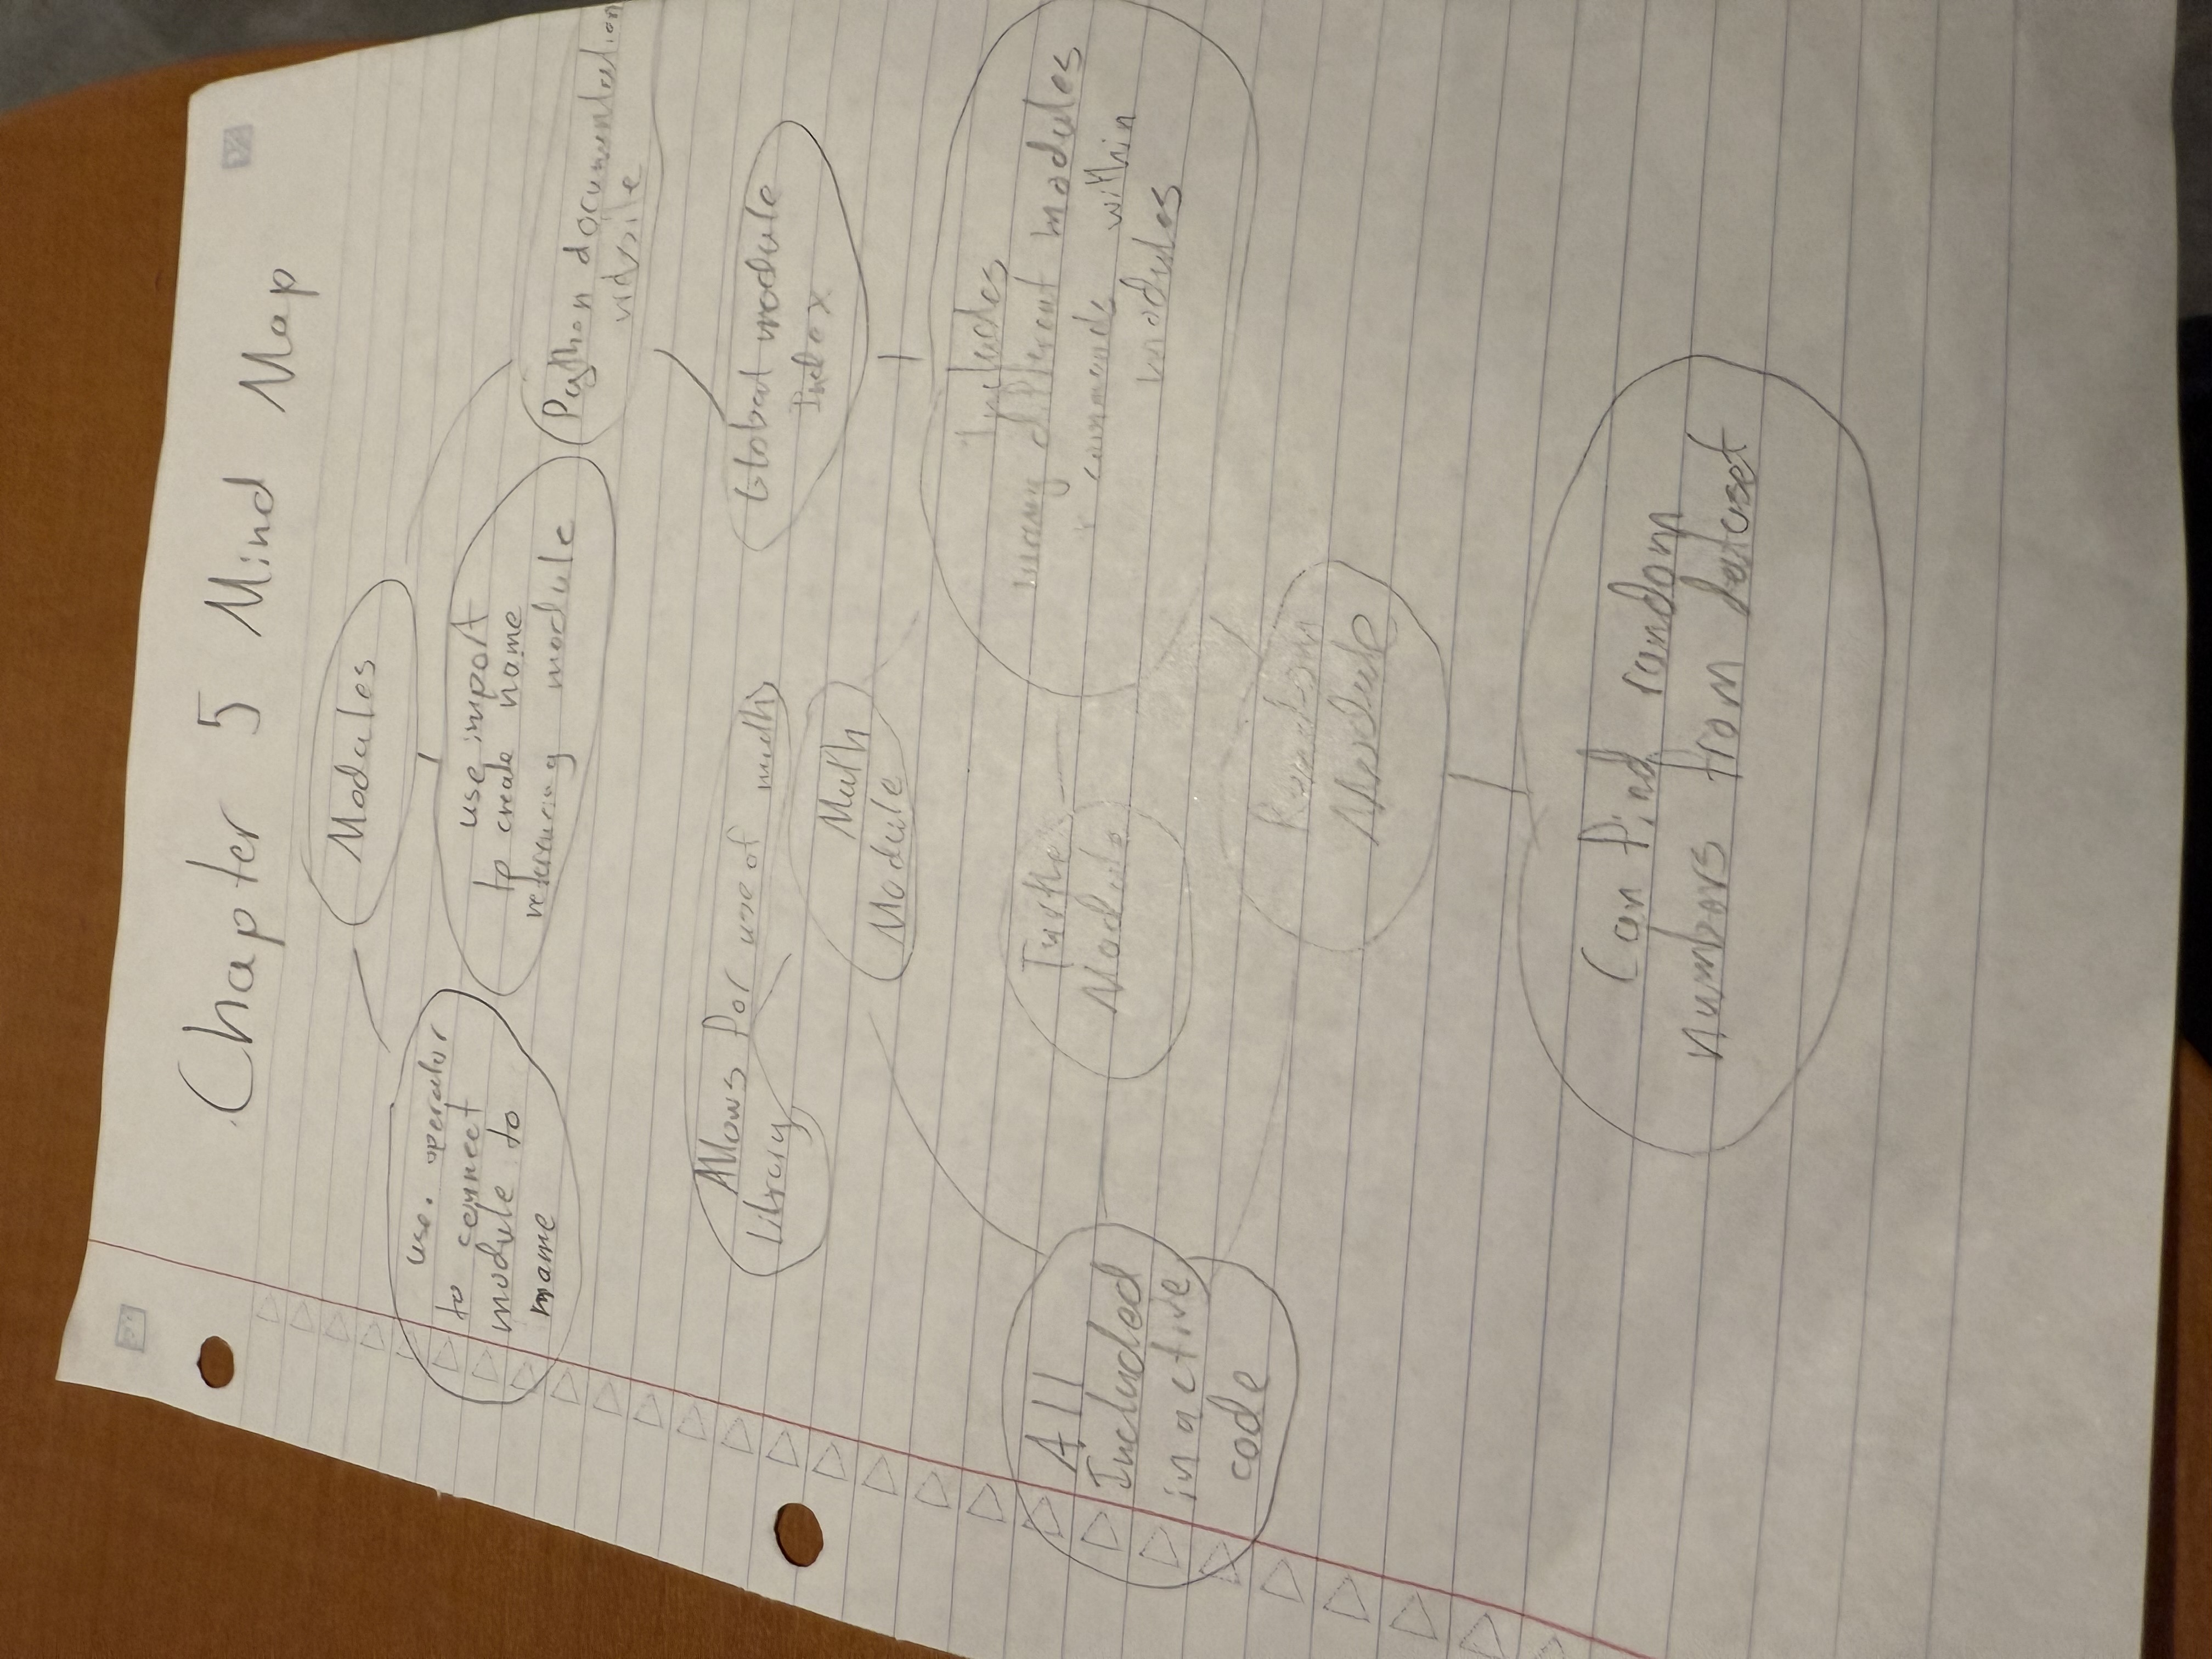 Chapter 5 Mind Map
Modules
use . operator
to connect
module to
name
use import
to create name
referencing module
Python documentation
website
Allows for use of math
library
Global module
Index
Math
Module
Includes
many different modules
+ commands within
modules
Turtle
Module
All
Included
in active
code
Random
Module
Can find random
numbers from dataset